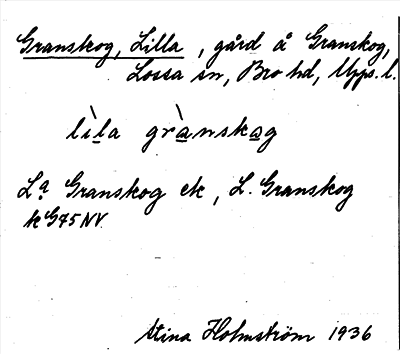 Granskog, Lilla, gård å Granskog,
Lossa sn, Bro hd, Upps. l.
lìla grànskag
La Granskog ek, L. Granskog
k G75 NV
Stina Holmström 1936